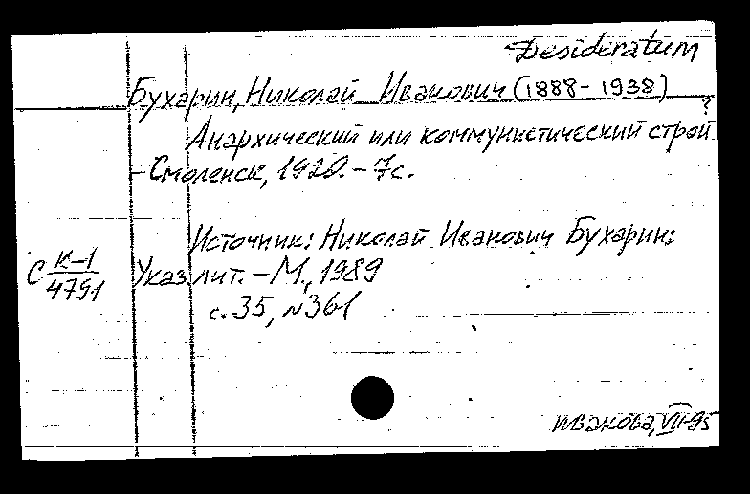 Desideratum
Бухарин, Николай Иванович (1888-1938)
Анархический или коммунистический строй?
-Смоленск, 1920.-7с.
Источник: Николай Иванович Бухарин:
С К-1/4791 Указ. лит.-М., 1989
с.35, №361
Иванова, VII-95